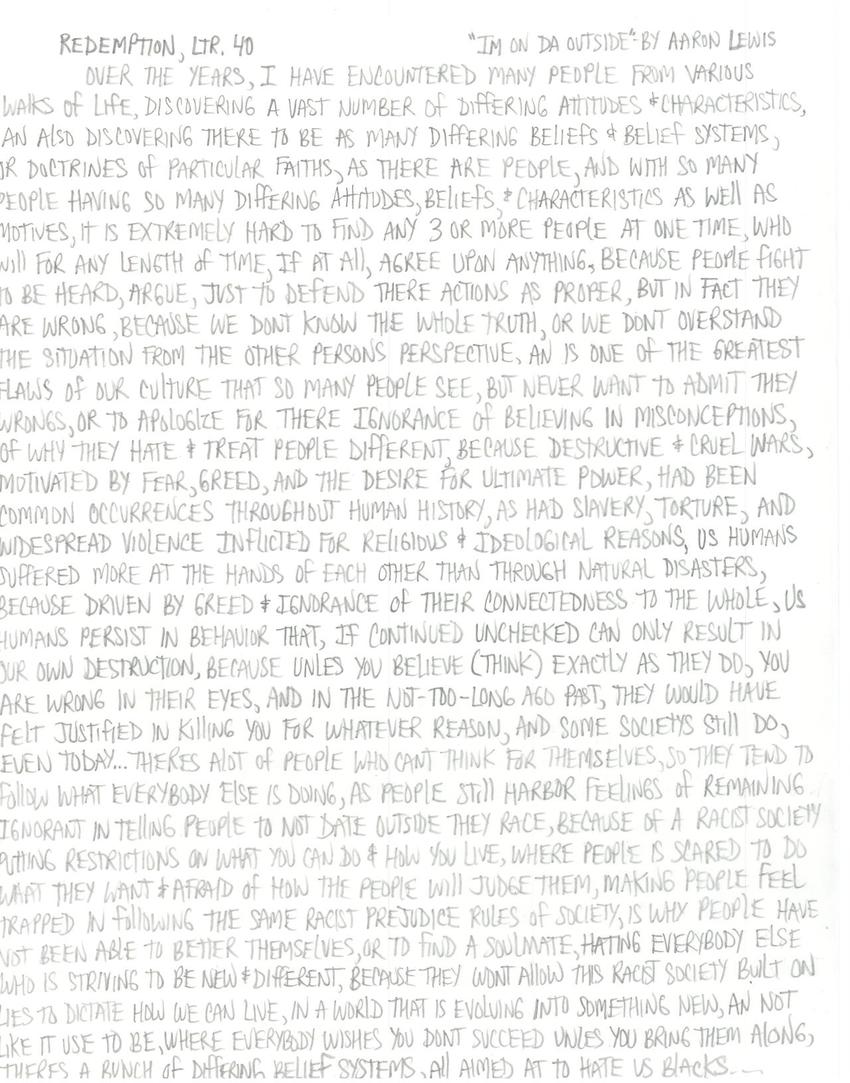 REDEMPTION, LTR. 40 "IM ON DA OUTSIDE"-BY AARON LEWIS
OVER THE YEARS, I HAVE ENCOUNTERED MANY PEOPLE FROM VARIOUS
WALKS OF LIFE, DISCOVERING A VAST NUMBER OF DIFFERING ATTITUDES & CHARACTERISTICS,
AN ALSO DISCOVERING THERE TO BE AS MANY DIFFERING BELIEFS & BELIEF SYSTEMS,
OR DOCTRINES OF PARTICULAR FAITHS, AS THERE ARE PEOPLE, AND WITH SO MANY
PEOPLE HAVING SO MANY DIFFERING ATTITUDES, BELIEFS, & CHARACTERISTICS AS WELL AS
MOTIVES, IT IS EXTREMELY HARD TO FIND ANY 3 OR MORE PEOPLE AT ONE TIME, WHO
WILL FOR ANY LENGTH OF TIME, IF AT ALL, AGREE UPON ANYTHING, BECAUSE PEOPLE FIGHT
TO BE HEARD, ARGUE, JUST TO DEFEND THERE ACTIONS AS PROPER, BUT IN FACT THEY
ARE WRONG, BECAUSE WE DONT KNOW THE WHOLE TRUTH, OR WE DONT OVERSTAND
THE SITUATION FROM THE OTHER PERSONS PERSPECTIVE, AN IS ONE OF THE GREATEST
FLAWS OF OUR CULTURE THAT SO MANY PEOPLE SEE, BUT NEVER WANT TO ADMIT THEY
WRONGS, OR TO APOLOGIZE FOR THERE IGNORANCE OF BELIEVING IN MISCONCEPTIONS,
OF WHY THEY HATE & TREAT PEOPLE DIFFERENT, BECAUSE DESTRUCTIVE & CRUEL WARS,
MOTIVATED BY FEAR, GREED, AND THE DESIRE FOR ULTIMATE POWER, HAD BEEN
COMMON OCCURRENCES THROUGHOUT HUMAN HISTORY, AS HAD SLAVERY, TORTURE, AND
WIDESPREAD VIOLENCE INFLICTED FOR RELIGIOUS & IDEOLOGICAL REASONS, US HUMANS
SUFFERED MORE AT THE HANDS OF EACH OTHER THAN THROUGH NATURAL DISASTERS,
BECAUSE DRIVEN BY GREED & IGNORANCE OF THEIR CONNECTEDNESS TO THE WHOLE, US
HUMANS PERSIST IN BEHAVIOR THAT, IF CONTINUED UNCHECKED CAN ONLY RESULT IN
OUR OWN DESTRUCTION, BECAUSE UNLES YOU BELIEVE (THINK) EXACTLY AS THEY DO, YOU
ARE WRONG IN THEIR EYES, AND IN THE NOT-TOO-LONG AGO PAST, THEY WOULD HAVE
FELT JUSTIFIED IN KILLING YOU FOR WHATEVER REASON, AND SOME SOCIETYS STILL DO,
EVEN TODAY... THERES ALOT OF PEOPLE WHO CANT THINK FOR THEMSELVES, SO THEY TEND TO
FOLLOW WHAT EVERYBODY ELSE IS DOING, AS PEOPLE STILL HARBOR FEELINGS OF REMAINING
IGNORANT IN TELLING PEOPLE TO NOT DATE OUTSIDE THEY RACE, BECAUSE OF A RACIST SOCIETY
PUTTING RESTRICTIONS ON WHAT YOU CAN DO & HOW YOU LIVE, WHERE PEOPLE IS SCARED TO DO
WHAT THEY WANT & AFRAID OF HOW THE PEOPLE WILL JUDGE THEM, MAKING PEOPLE FEEL
TRAPPED IN FOLLOWING THE SAME RACIST PREJUDICE RULES OF SOCIETY, IS WHY PEOPLE HAVE
NOT BEEN ABLE TO BETTER THEMSELVES, OR TO FIND A SOULMATE, HATING EVERYBODY ELSE
WHO IS STRIVING TO BE NEW & DIFFERENT, BECAUSE THEY WONT ALLOW THIS RACIST SOCIETY BUILT ON
LIES TO DICTATE HOW WE CAN LIVE, IN A WORLD THAT IS EVOLVING INTO SOMETHING NEW, AN NOT
LIKE IT USE TO BE, WHERE EVERYBODY WISHES YOU DONT SUCCEED UNLES YOU BRING THEM ALONG,
THERES A BUNCH OF DIFFERING BELIEF SYSTEMS, ALL AIMED AT TO HATE US BLACKS...